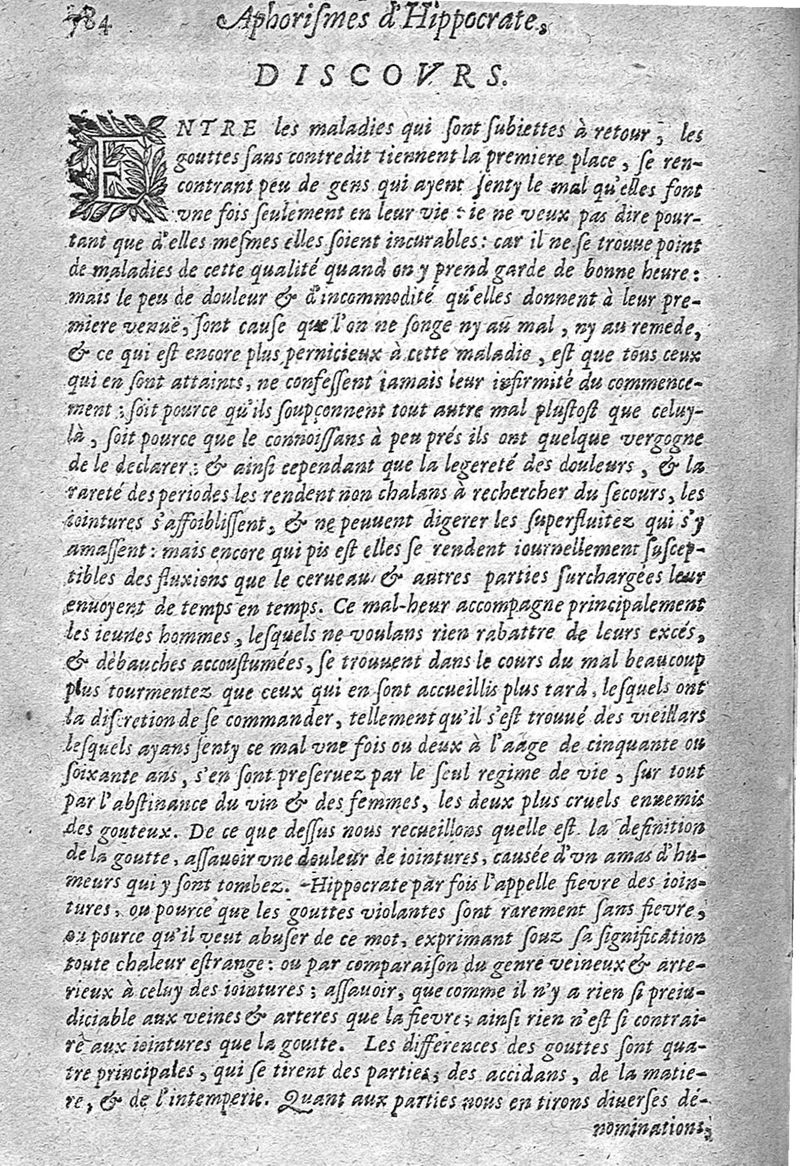 784 Aphoriſmes d'Hippocrate,
DISCOVRS.
ENTRE les maladies qui ſont ſubiettes à retour, les
gouttes ſans contredit tiennent la premiere place, ſe ren-
contrant peu de gens qui ayent ſenty le mal qu'elles font
vne fois ſeulement en leur vie : ie ne veux pas dire pour-
tant que d'elles meſmes elles ſoient incurables : car il ne ſe trouue point
de maladies de cette qualité quand on y prend garde de bonne heure :
mais le peu de douleur & d'incommodité qu'elles donnent à leur pre-
miere venuë, ſont cauſe que l'on ne ſonge ny au mal, ny au remede,
& ce qui eſt encore plus pernicieux à cette maladie, eſt que tous ceux
qui en ſont attaints, ne confeſſent iamais leur infirmité du commence-
ment ; ſoit pource qu'ils ſoupçonnent tout autre mal pluſtoſt que celuy-
là, ſoit pource que le connoiſſans à peu prés ils ont quelque vergogne
de le declarer : & ainſi cependant que la legereté des douleurs, & la
rareté des periodes les rendent non chalans à rechercher du ſecours, les
iointures s'affoibliſſent, & ne peuuent digerer les ſuperfluitez qui s'y
amaſſent : mais encore qui pis eſt elles ſe rendent iournellement ſuſcep-
tibles des fluxions que le cerueau & autres parties ſurchargées leur
enuoyent de temps en temps. Ce mal-heur accompagne principalement
les ieunes hommes, leſquels ne voulans rien rabattre de leurs excés,
& débauches accouſtumées, ſe trouuent dans le cours du mal beaucoup
plus tourmentez que ceux qui en ſont accueillis plus tard, leſquels ont
la diſcretion de ſe commander, tellement qu'il s'eſt trouué des vieillars
leſquels ayans ſenty ce mal vne fois ou deux à l'aage de cinquante ou
ſoixante ans, s'en ſont preſeruez par le ſeul regime de vie, ſur tout
par l'abſtinance du vin & des femmes, les deux plus cruels ennemis
des gouteux. De ce que deſſus nous recueillons quelle eſt la definition
de la goutte, aſſauoir vne douleur de iointures, cauſée d'vn amas d'hu-
meurs qui y ſont tombez. Hippocrate par fois l'appelle fievre des ioin-
tures, ou pource que les gouttes violantes ſont rarement ſans fievre,
ou pource qu'il veut abuſer de ce mot, exprimant ſouz ſa ſignification
toute chaleur eſtrange : ou par comparaiſon du genre veineux & arte-
rieux à celuy des iointures ; aſſauoir, que comme il n'y a rien ſi preiu-
diciable aux veines & arteres que la fievre ; ainſi rien n'eſt ſi contrai-
re aux iointures que la goutte. Les differences des gouttes ſont qua-
tre principales, qui ſe tirent des parties, des accidans, de la matie-
re, & de l'intemperie. Quant aux parties nous en tirons diuerſes dé-
nominations,